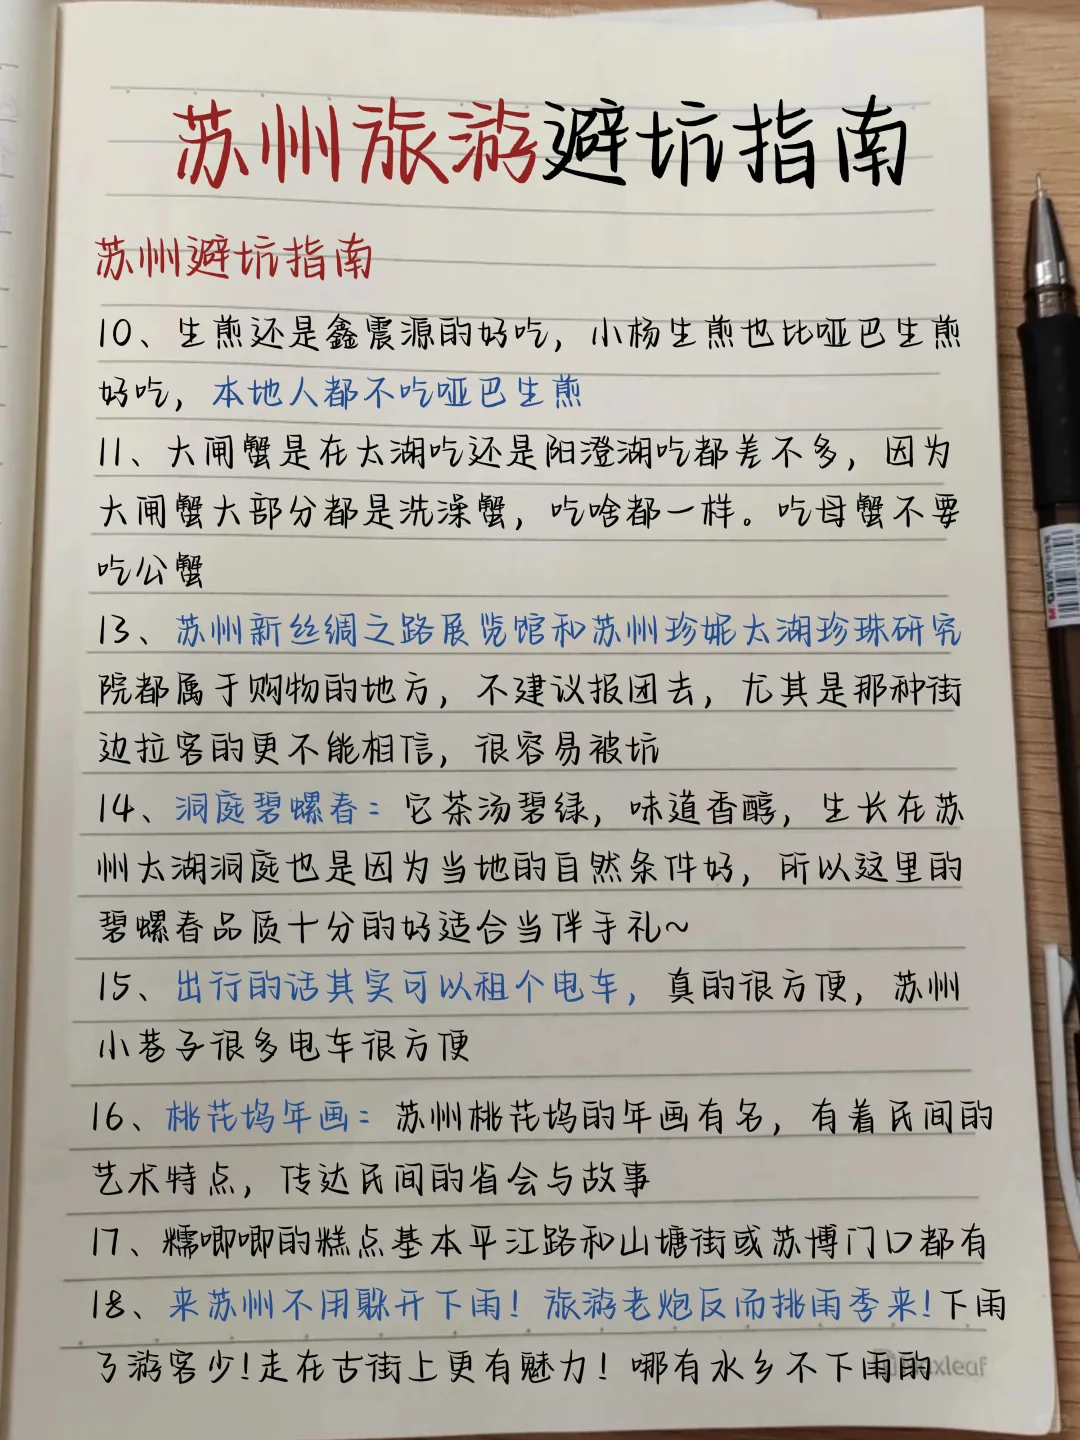 苏州旅游避坑指南
苏州避坑指南
10、生煎还是鑫震源的好吃，小杨生煎也比哑巴生煎
好吃，本地人都不吃哑巴生煎
11、大闸蟹是在太湖吃还是阳澄湖吃都差不多，因为
大闸蟹大部分都是洗澡蟹，吃啥都一样。吃母蟹不要
吃公蟹
13、苏州新丝绸之路展览馆和苏州珍妮太湖珍珠研究
院都属于购物的地方，不建议报团去，尤其是那种街
边拉客的更不能相信，很容易被坑
14、洞庭碧螺春：它茶汤碧绿，味道香醇，生长在苏
州太湖洞庭也是因为当地的自然条件好，所以这里的
碧螺春品质十分的好适合当伴手礼~
15、出行的话其实可以租个电车，真的很方便，苏州
小巷子很多电车很方便
16、桃花坞年画：苏州桃花坞的年画有名，有着民间的
艺术特点，传达民间的省会与故事
17、糯唧唧的糕点基本平江路和山塘街或苏博门口都有
18、来苏州不用躲开下雨！旅游老炮反而挑雨季来！下雨
了游客少！走在古街上更有魅力！哪有水乡不下雨的